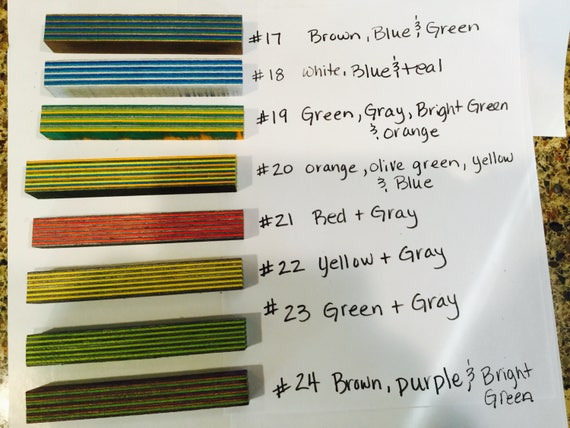 #17 Brown, Blue & Green
#18 White, Blue & teal
#19 Green, Gray, Bright Green
& orange
#20 orange, olive green, yellow
& Blue
#21 Red + Gray
#22 Yellow + Gray
#23 Green + Gray
#24 Brown, purple & Bright
Green